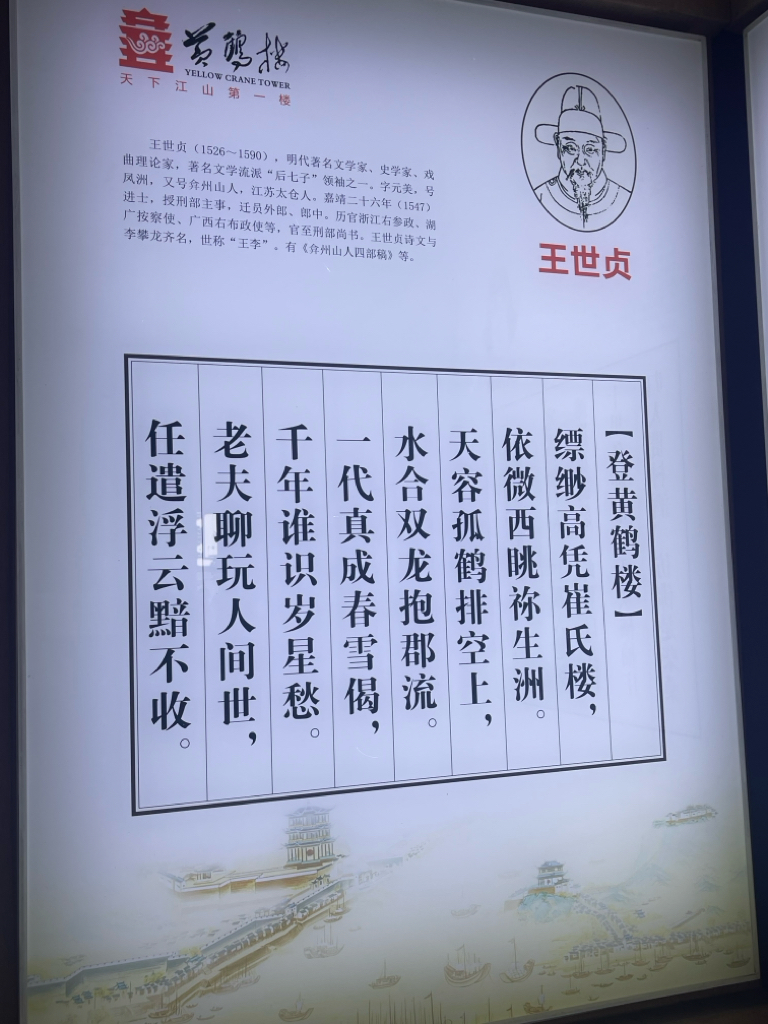 黄鹤楼
YELLOW CRANE TOWER
天下江山第一楼
王世贞（1526～1590），明代著名文学家、史学家、戏
曲理论家，著名文学流派“后七子”领袖之一。字元美，号
凤洲，又号弇州山人，江苏太仓人。嘉靖二十六年（1547）
进士，授刑部主事，迁员外郎、郎中。历官浙江右参政、湖
广按察使、广西右布政使等，官至刑部尚书。王世贞诗文与
李攀龙齐名，世称“王李”。有《弇州山人四部稿》等。
王世贞
【登黄鹤楼】
缥缈高凭崔氏楼，
依微西眺祢生洲。
天容孤鹤排空上，
水合双龙抱郡流。
一代真成春雪偈，
千年谁识岁星愁。
老夫聊玩人间世，
任遣浮云黯不收。